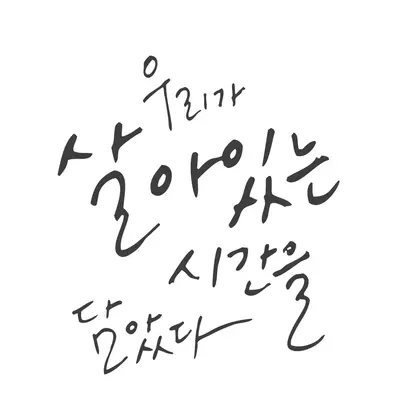 우리가
살아있는
시간을
담았다